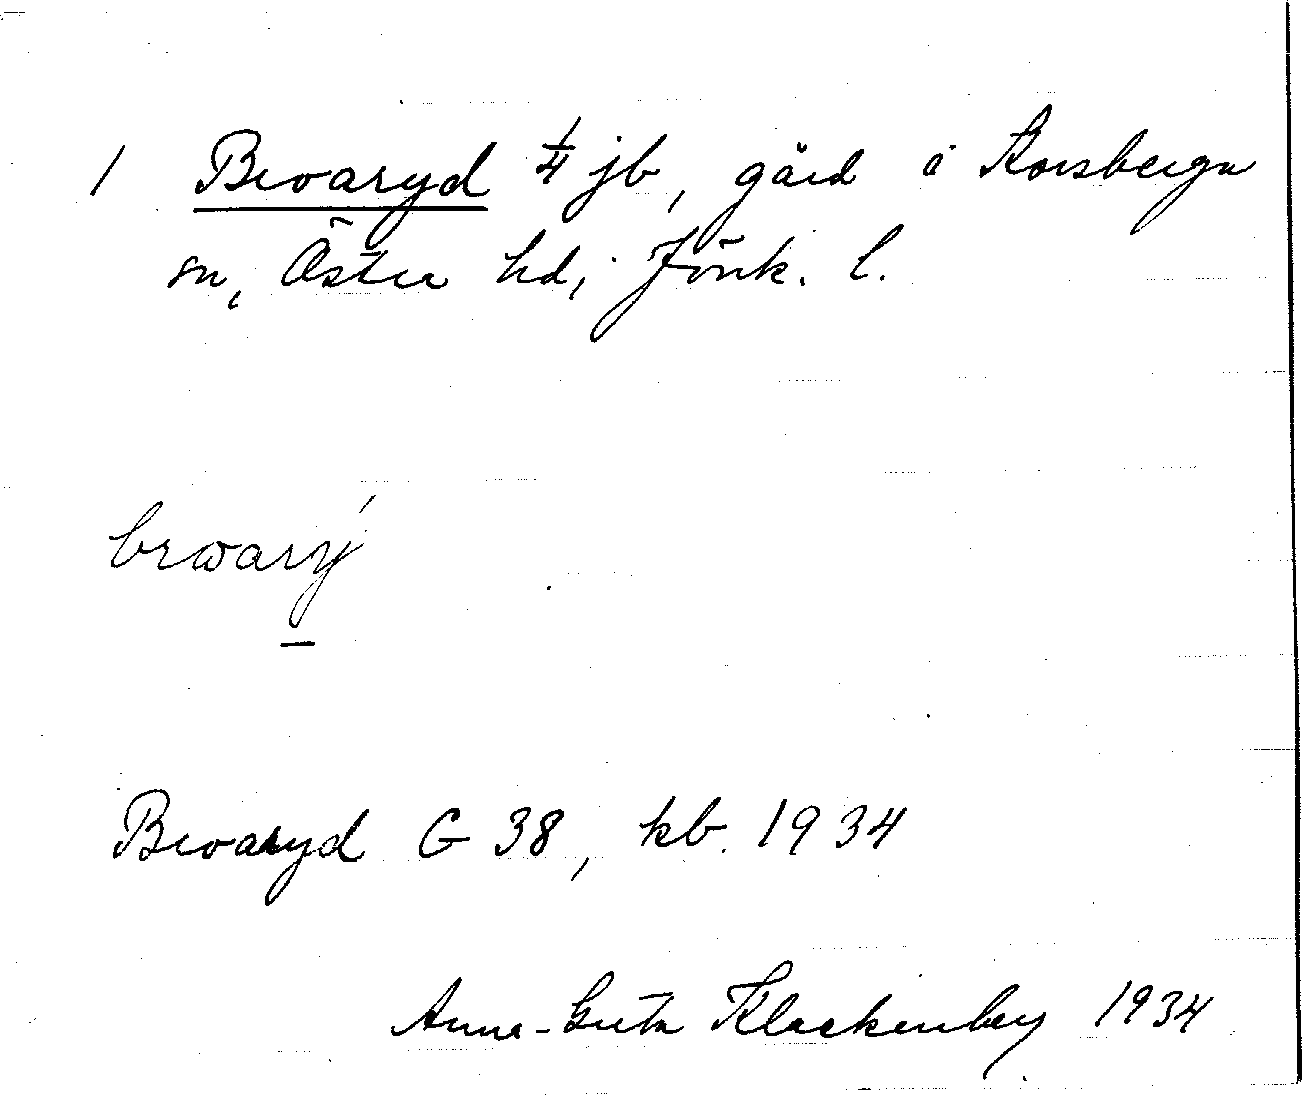 1 Broaryd 1/4 jb, gård i Korsberga
sn, Östra hd, Jönk. l.
brωarý
Broaryd G 38, kb. 1934
Anna-Greta Klackenberg 1934